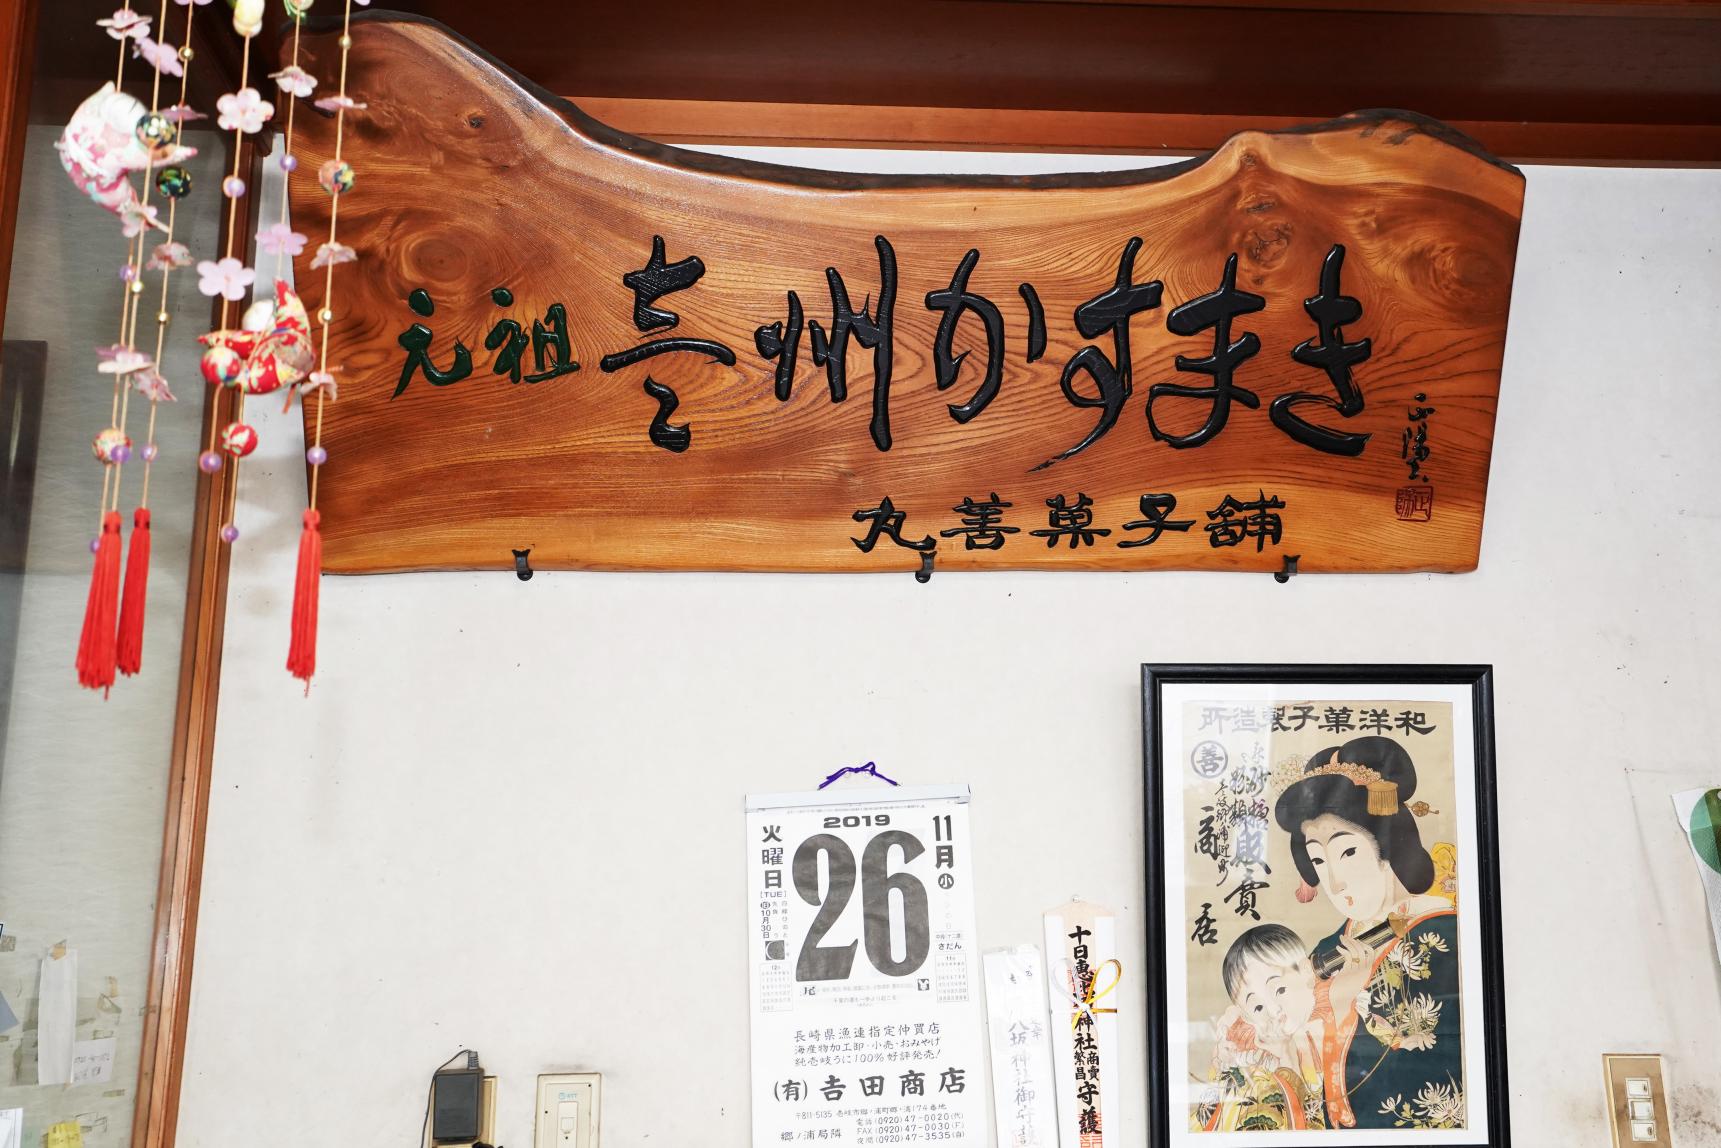 元祖 壱州かすまき
丸善菓子舗
和洋菓子製造所
善
砂糖
販賣
商店
2019
11月小
火曜日
[TUE]
旧10月30日
26
さだん
12月
11月
尾
長崎県漁連指定仲買店
海産物加工卸・小売・おみやげ
純壱岐うに100%好評発売!
(有)吉田商店
〒811-5135 壱岐市郷ノ浦町郷ノ浦174番地
郷ノ浦局隣
電話(0920)47-0020(代)
FAX(0920)47-0030(F)
夜間(0920)47-3535(自)
八坂神社御守護
十日恵比須神社
商売繁昌
守護